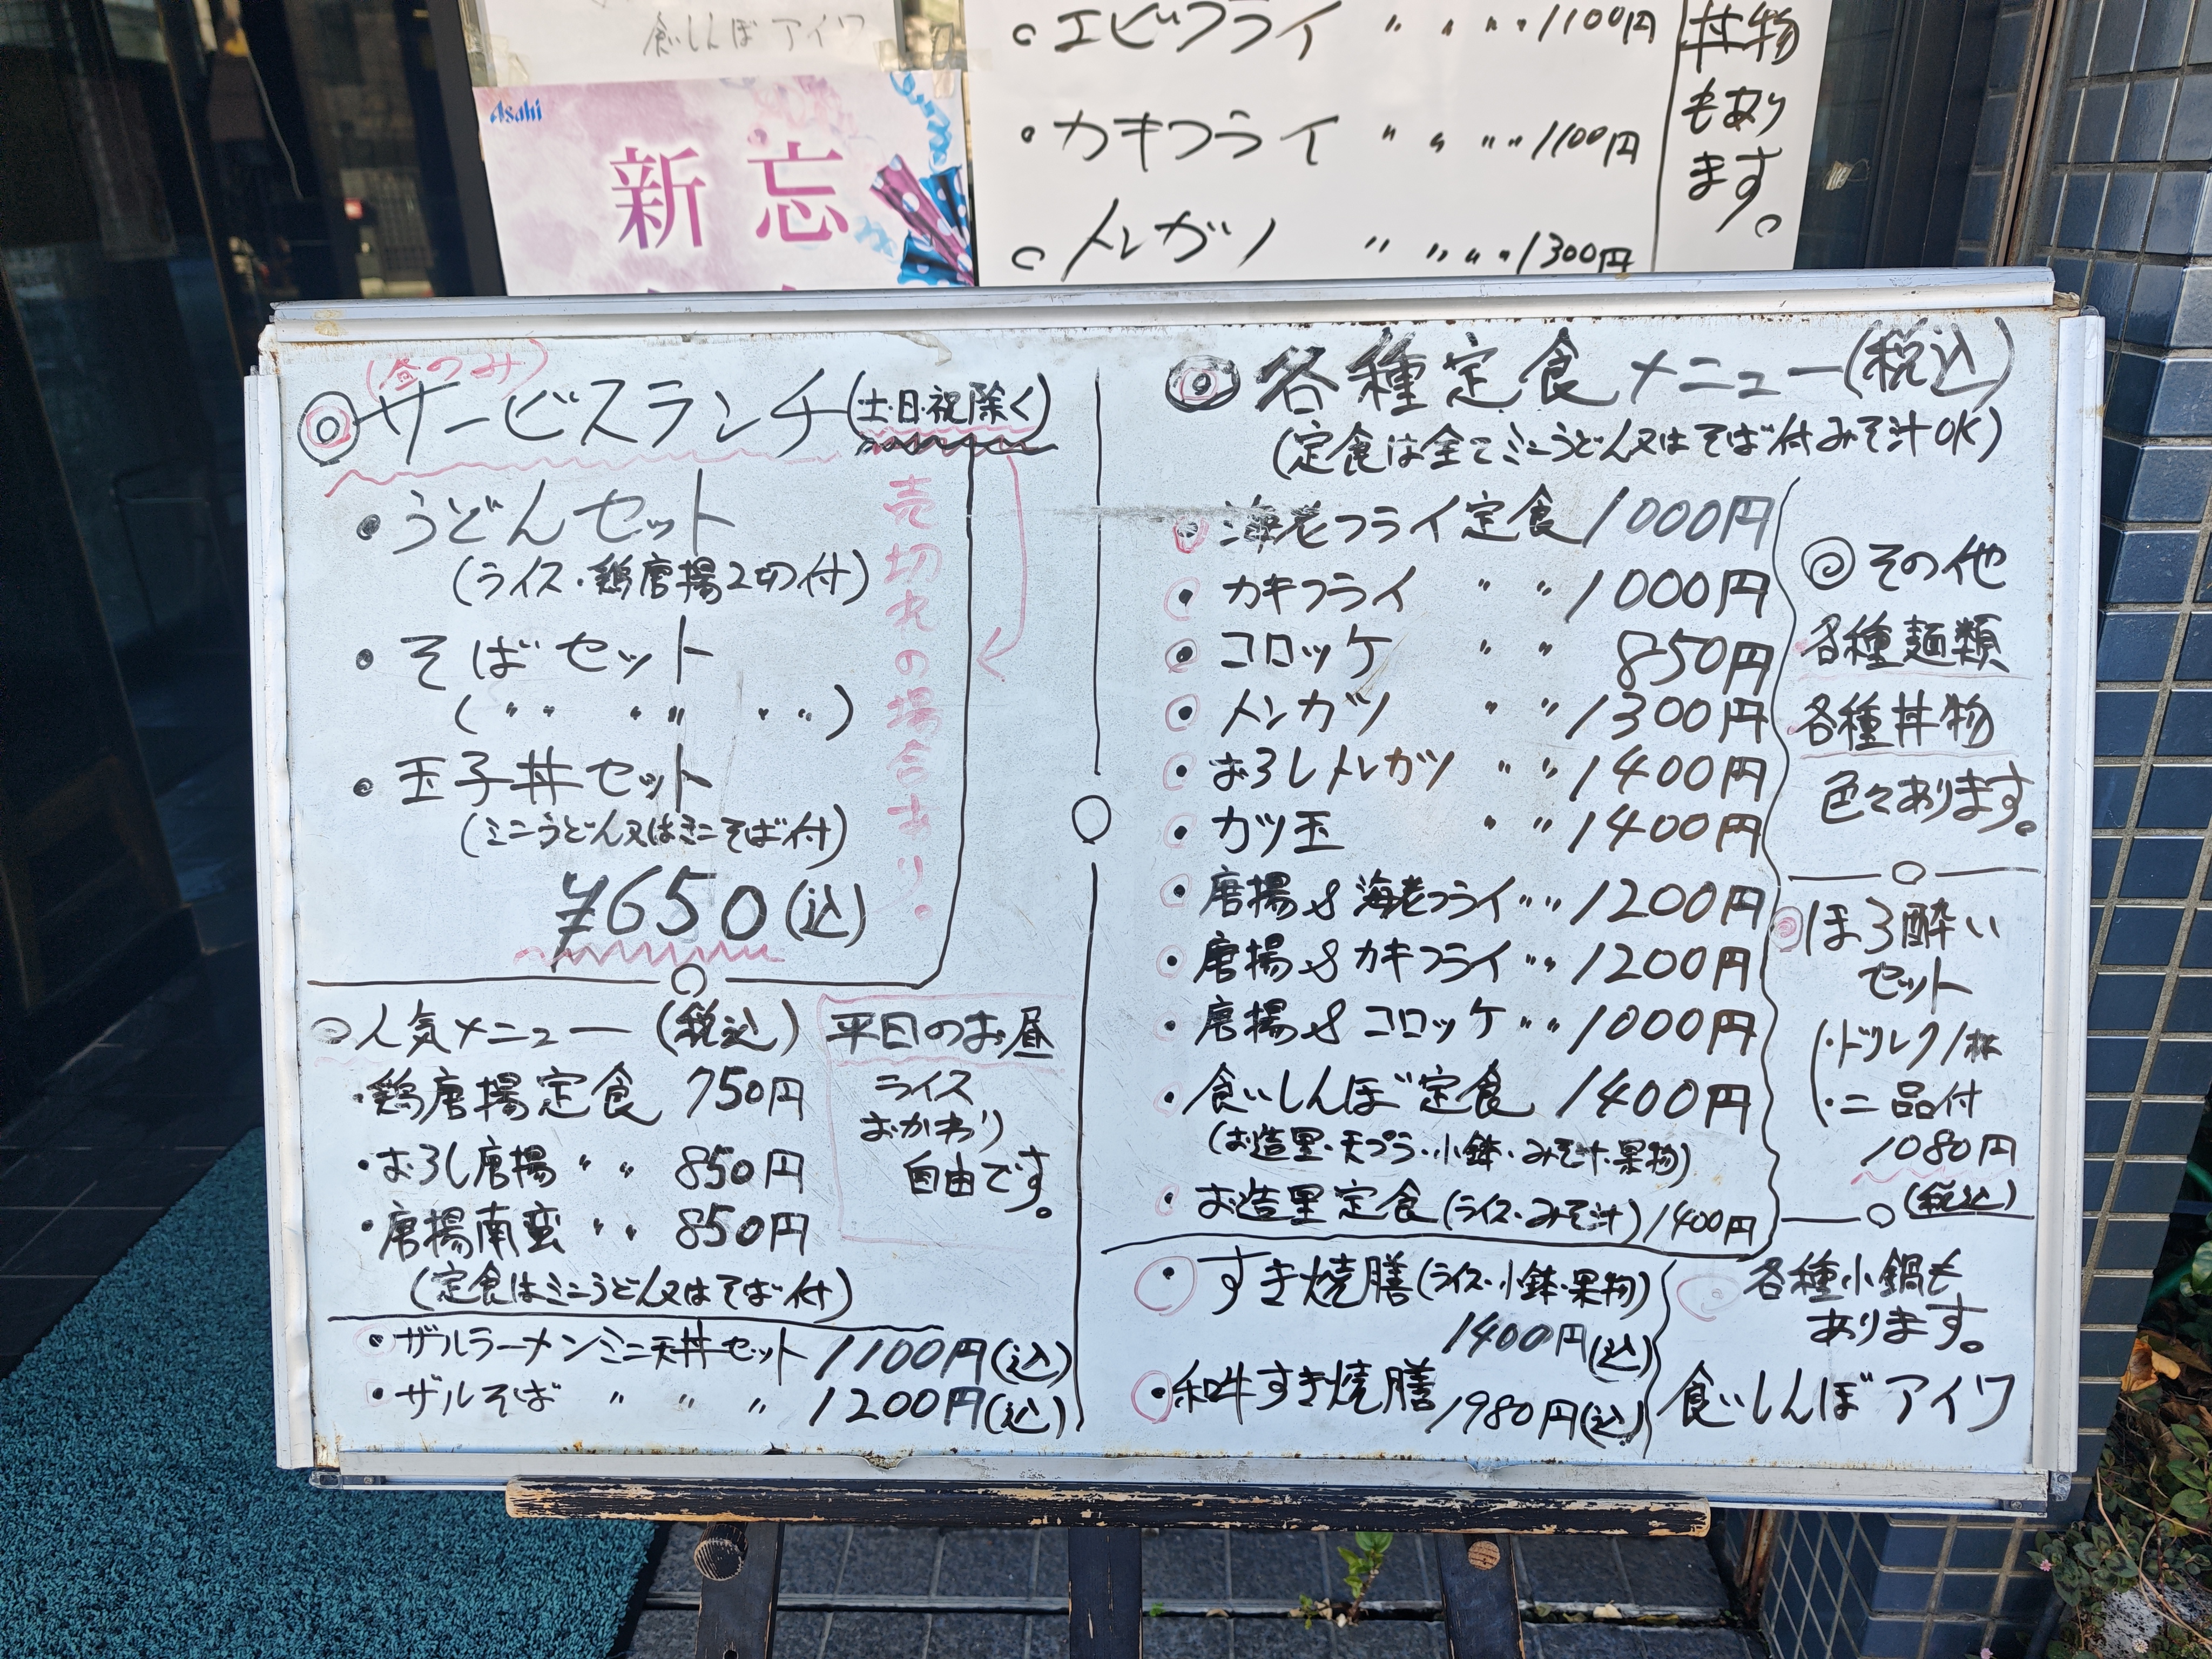 食いしんぼアイワ
Asahi
新 忘
・エビフライ 〃 〃 〃 1100円
・カキフライ 〃 〃 〃 1100円
・トンカツ 〃 〃 〃 1300円
丼物
もあり
ます。
(昼のみ)
◎サービスランチ(土・日・祝除く)
・うどんセット
(ライス・鶏唐揚2切付)
・そばセット
(〃 〃 〃)
・玉子丼セット
(ミニうどん又はミニそば付)
¥650(込)
売切れの場合あり。
○人気メニュー(税込)
・鶏唐揚定食 750円
・おろし唐揚 〃 〃 850円
・唐揚南蛮 〃 〃 850円
(定食はミニうどん又はそば付)
平日のお昼
ライス
おかわり
自由です。
・ザルラーメンミニ天丼セット 1100円(込)
・ザルそば 〃 〃 〃 1200円(込)
◎各種定食メニュー(税込)
(定食は全てミニうどん又はそば付みそ汁OK)
・海老フライ定食 1000円
・カキフライ 〃 〃 1000円
・コロッケ 〃 〃 850円
・トンカツ 〃 〃 1300円
・おろしトンカツ 〃 〃 1400円
・カツ玉 〃 〃 1400円
・唐揚&海老フライ 〃 〃 1200円
・唐揚&カキフライ 〃 〃 1200円
・唐揚&コロッケ 〃 〃 1000円
・食いしんぼ定食 1400円
(お造里・天プラ・小鉢・みそ汁・果物)
・お造里定食(ライス・みそ汁)1400円
・すき焼膳(ライス・小鉢・果物)
1400円(込)
・和牛すき焼膳 1980円(込)
◎その他
各種麺類
各種丼物
色々あります。
◎ほろ酔い
セット
(・ドリンク1杯
・二品付
1080円
(税込)
◎各種小鍋も
あります。
食いしんぼアイワ